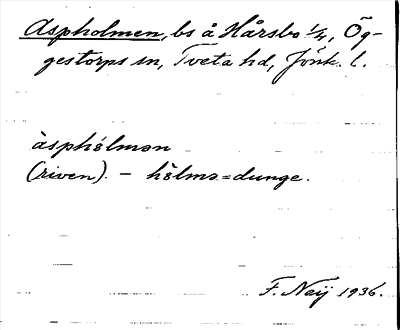 Aspholmen, bs å Hårsbo 1/4, Ög-
gestorps sn, Tveta hd, Jönk. l.
àsphélmən
(riven). - hòlmə = dunge.
F. Neij 1936.